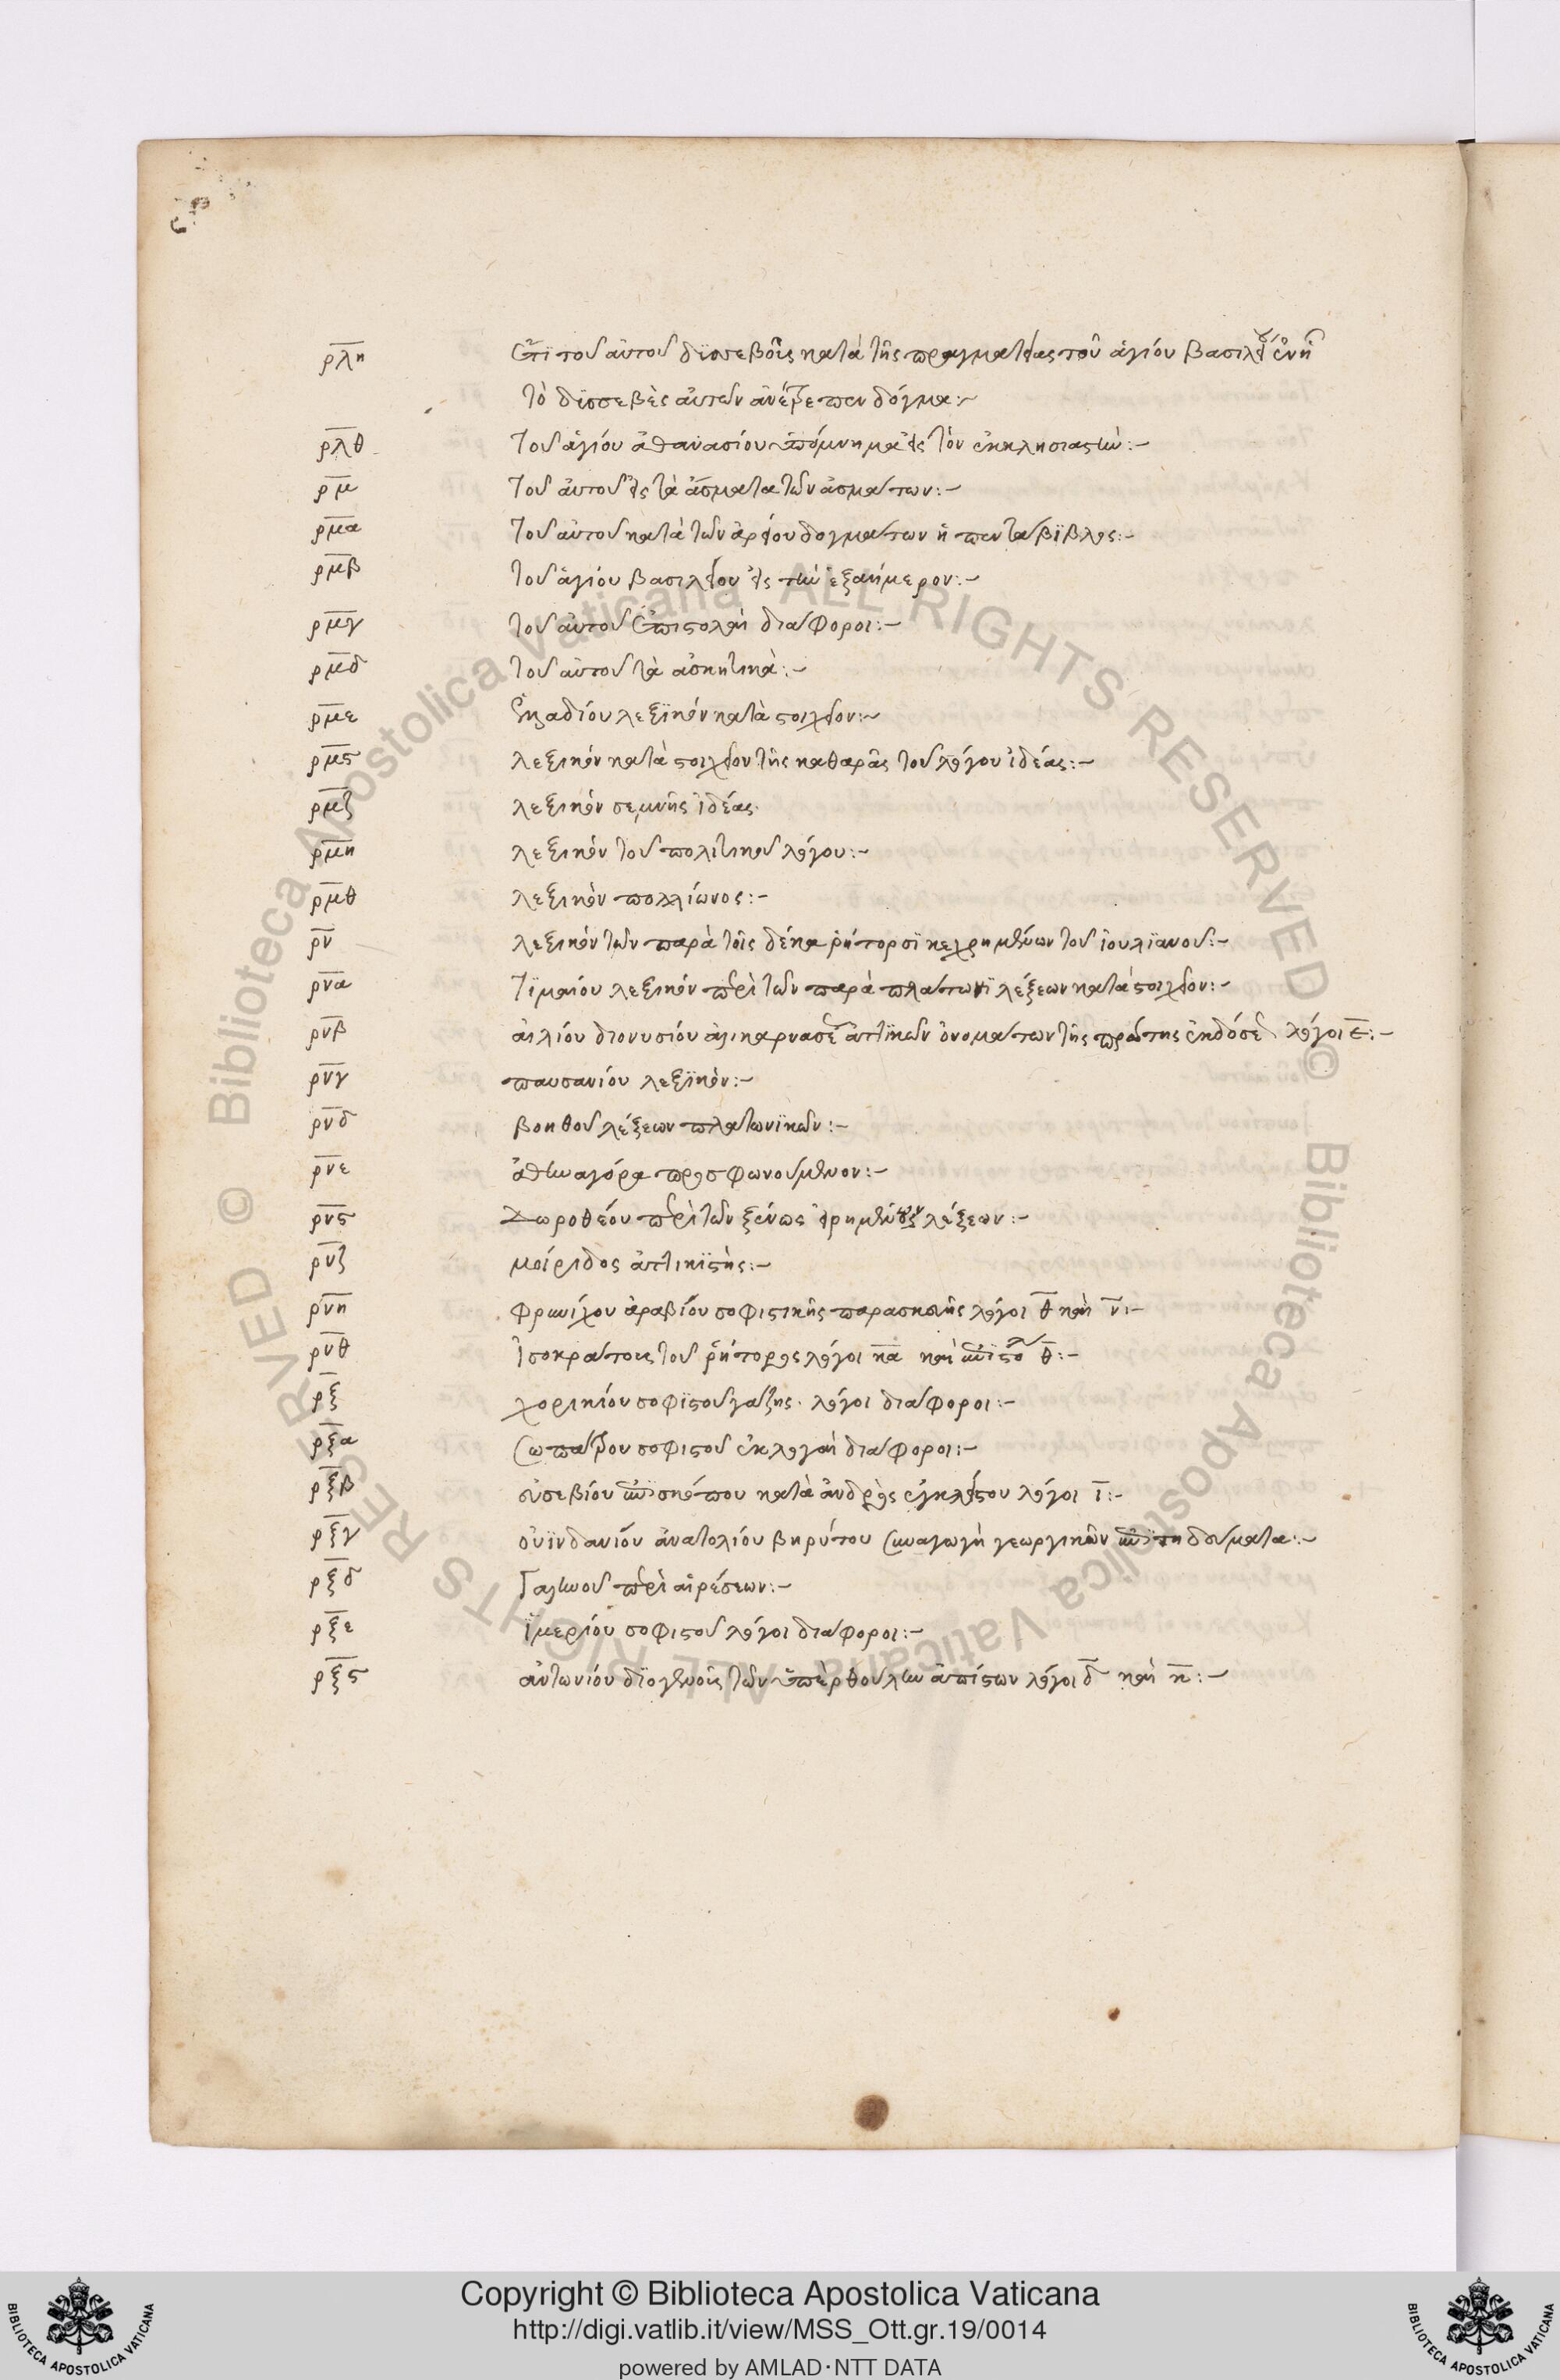 ρλη Ἔτι τοῦ αὐτοῦ δϋσσεβοῦς κατὰ τῆς πραγματείας τοῦ ἁγίου βασιλείου ἐν ᾗ
τὸ δϋσσεβὲς αὐτῶν ἀνέτρεπεν δόγμα:~
ρλθ Τοῦ ἁγίου ἀθανασίου ὑπόμνημα εἰς τὸν ἐκκλησιαστήν:~
ρμ Τοῦ αὐτοῦ εἰς τὰ ἄσματα τῶν ἀσμάτων:~
ρμα Τοῦ αὐτοῦ κατὰ τῶν ἀρείου δογμάτων ἡ πεντάβϊβλος:~
ρμβ Τοῦ ἁγίου βασιλείου εἰς τὴν ἑξαήμερον:~
ρμγ Τοῦ αὐτοῦ Ἐπιστολαὶ διάφοροι:~
ρμδ Τοῦ αὐτοῦ τὰ ἀσκητικὰ:~
ρμε λεξϊκὸν κατὰ στοιχεῖον:~
ρμς λεξικὸν κατὰ στοιχεῖον τῆς καθαρᾶς τοῦ λόγου ἰδέας:~
ρμζ λεξικὸν σεμνῆς ἰδέας.
ρμη λεξικὸν τοῦ πολιτικοῦ λόγου:~
ρμθ λεξικὸν πολλίωνος:~
ρν λεξικὸν τῶν παρὰ τοῖς δέκα ῥήτορσϊ κεχρημένων τοῦ ϊουλϊανοῦ:~
ρνα Τϊμαίου λεξικὸν περὶ τῶν παρὰ πλάτωνϊ λέξεων κατὰ στοιχεῖον:~
ρνβ αἰλίου διονυσίου ἁλικαρνασέως ἀττϊκῶν ὀνομάτων τῆς πρώτης ἐκδόσεως λόγοι ε:~
ρνγ παυσανίου λεξϊκὸν:~
ρνδ βοηθοῦ λέξεων πλατωνϊκῶν:~
ρνε ἀθηναγόρα προσφωνούμενον:~
ρνς Δωροθέου περὶ τῶν ξένως εἰρημένων λέξεων:~
ρνζ μοίριδος ἀττικϊστὴς:~
ρνη φρυνίχου ἀραβίου σοφιστικῆς παρασκευῆς λόγοι θ καὶ ν:~
ρνθ Ἰσοκράτους τοῦ ῥήτορος λόγοι κα καὶ ἐπϊστολαὶ θ:~
ρξ χορικίου σοφϊστοῦ γάζης. λόγοι διάφοροι:~
ρξα Σωπάτρου σοφιστοῦ ἐκλογαὶ διάφοροι:~
ρξβ εὐσεβίου ἐπϊσκόπου κατὰ ἀνδρὸς λόγοι ι:~
ρξγ οὐϊνδανίου ἀνατολίου βηρύτου συναγωγὴ γεωργικῶν ἐπϊτηδευμάτα:~
ρξδ Γαληνοῦ περὶ αἱρέσεων:~
ρξε ϊμερίου σοφιστοῦ λόγοι διάφοροι:~
ρξς ἀντωνίου δϊογένους τῶν ὑπὲρ θούλην ἀπίστων λόγοι δ καὶ κ:~
Copyright © Biblioteca Apostolica Vaticana
http://digi.vatlib.it/view/MSS_Ott.gr.19/0014
powered by AMLAD·NTT DATA
BIBLIOTECA APOSTOLICA VATICANA
BIBLIOTECA APOSTOLICA VATICANA
Biblioteca Apostolica Vaticana ALL RIGHTS RESERVED ©
Biblioteca Apostolica Vaticana ALL RIGHTS RESERVED ©